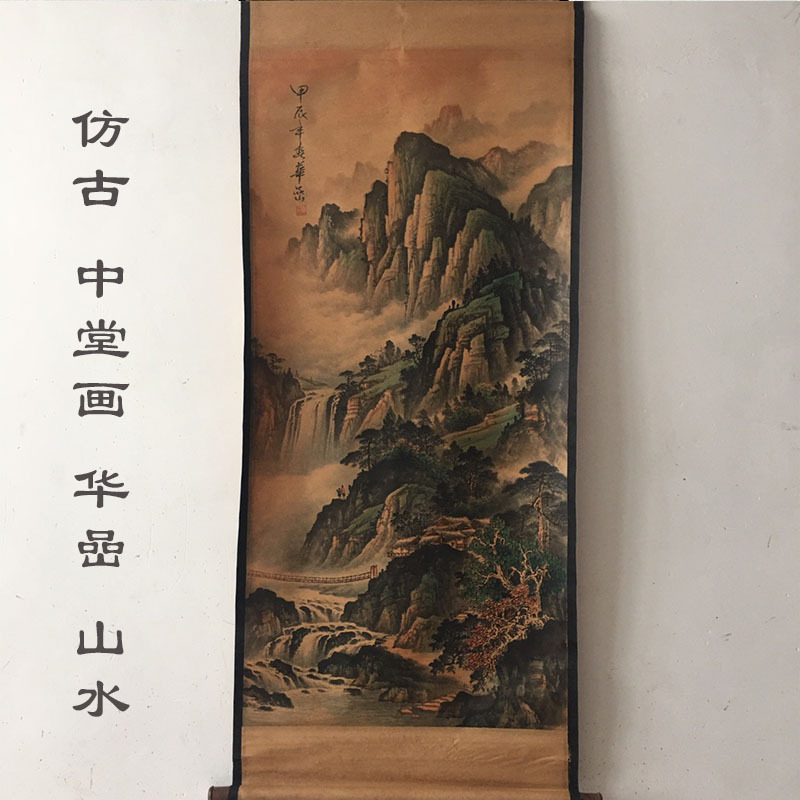 仿古 中堂画 华嵒 山水
甲辰年華嵒